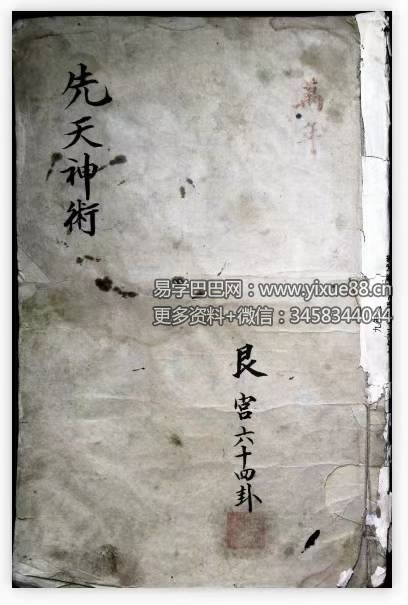 萬年
先天神術
易学巴巴网：www.yixue88.cn
更多资料+微信：3458344044
艮宮六十四卦